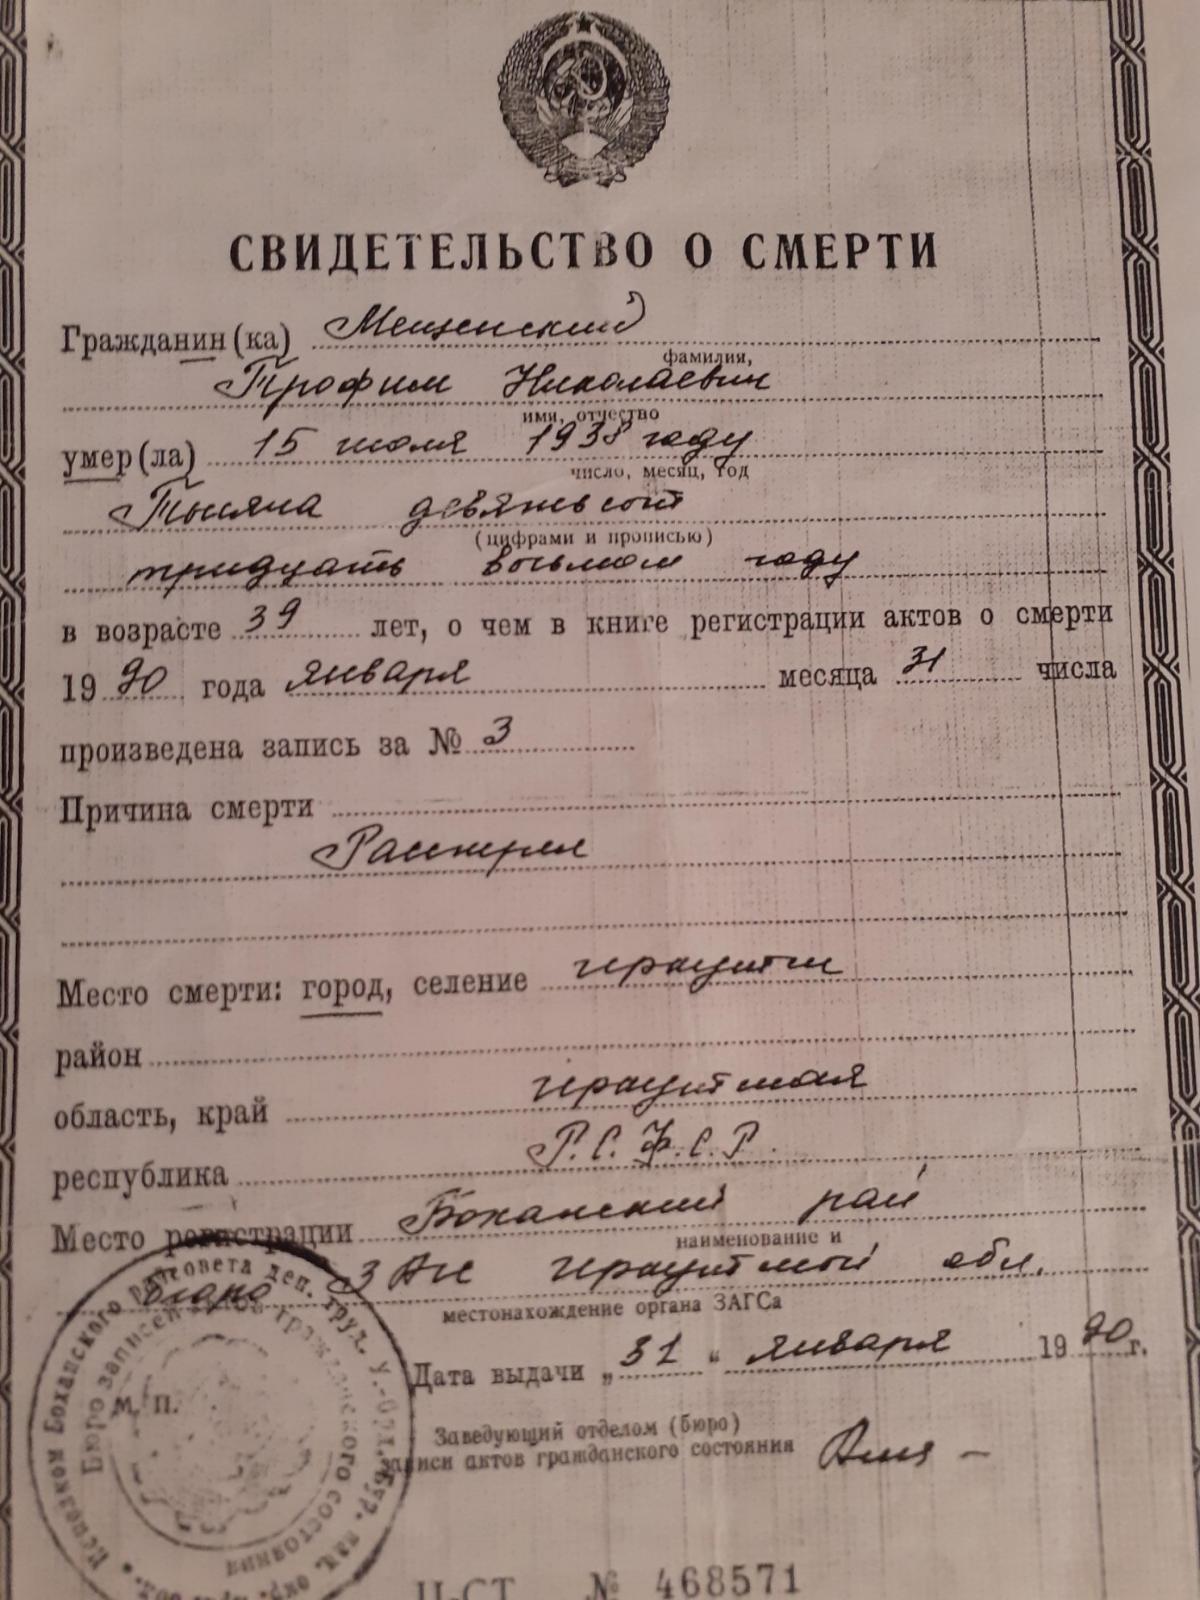 СВИДЕТЕЛЬСТВО О СМЕРТИ
Гражданин(ка) Мещенский
фамилия,
Трофим Николаевич
имя, отчество
умер(ла) 15 июля 1938 году
число, месяц, год
Тысяча девятьсот
(цифрами и прописью)
тридцать восьмом году
в возрасте 39 лет, о чем в книге регистрации актов о смерти
1990 года января месяца 31 числа
произведена запись за № 3
Причина смерти
Расстрел
Место смерти: город, селение Иркутск
район
область, край Иркутская
республика Р.С.Ф.С.Р.
Место регистрации Боханский рай
наименование и
бюро ЗАГС Иркутской обл.
местонахождение органа ЗАГСа
Дата выдачи „31" января 1990 г.
М. П.
Заведующий отделом (бюро)
записи актов гражданского состояния
Бюро записей актов гражданского состояния
Исполком Боханского райсовета деп. труд. У.-Орд. Бур. нац. окр.
II-СТ № 468571